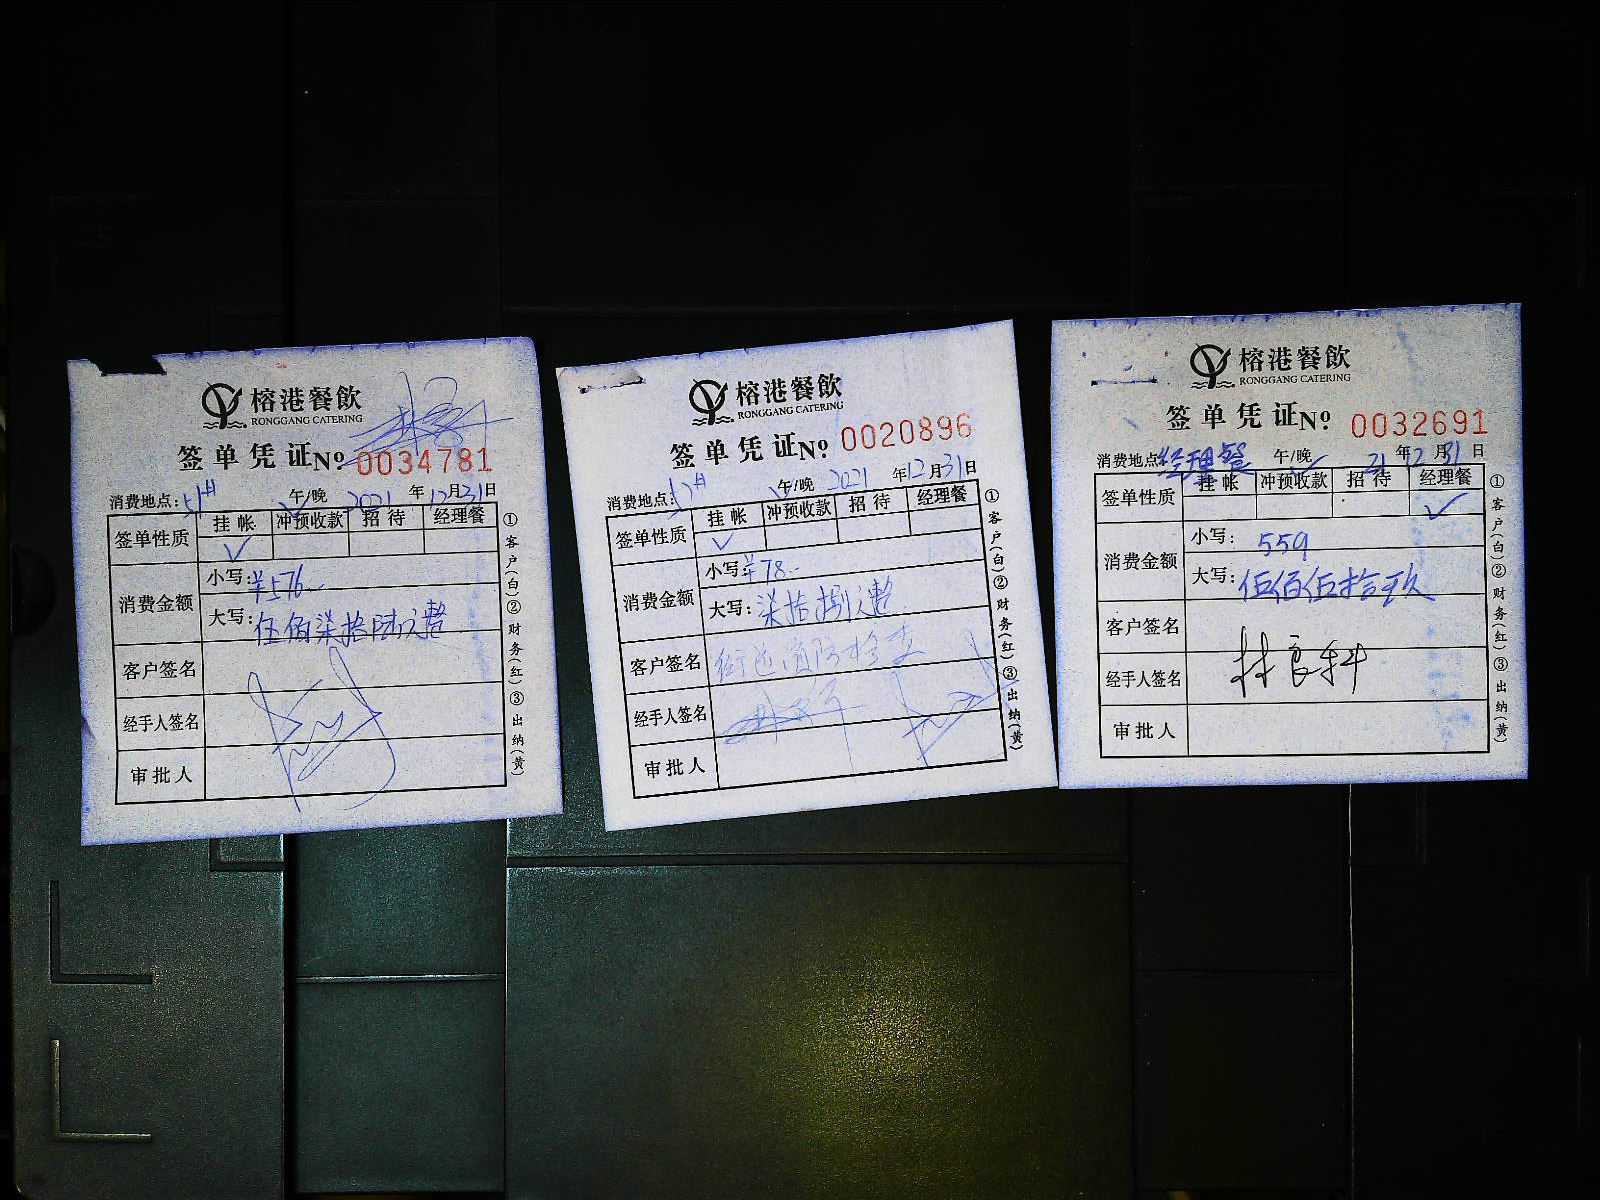 榕港餐飲
RONGGANG CATERING
签单凭证No 0034781
消费地点: 午/晚 2021年12月31日
签单性质 挂帐 冲预收款 招待 经理餐
✓
消费金额 小写:¥576..
大写:伍佰柒拾陆元整
客户签名
经手人签名
审批人
①客户(白)②财务(红)③出纳(黄)
榕港餐飲
RONGGANG CATERING
签单凭证No 0020896
消费地点: 午/晚 2021年12月31日
签单性质 挂帐 冲预收款 招待 经理餐
✓
消费金额 小写:¥78..
大写:柒拾捌元整
客户签名
经手人签名
审批人
①客户(白)②财务(红)③出纳(黄)
榕港餐飲
RONGGANG CATERING
签单凭证No 0032691
消费地点:经理餐 午/晚 21年12月31日
签单性质 挂帐 冲预收款 招待 经理餐
✓
消费金额 小写: 559
大写:伍佰伍拾玖
客户签名
经手人签名 林良科
审批人
①客户(白)②财务(红)③出纳(黄)